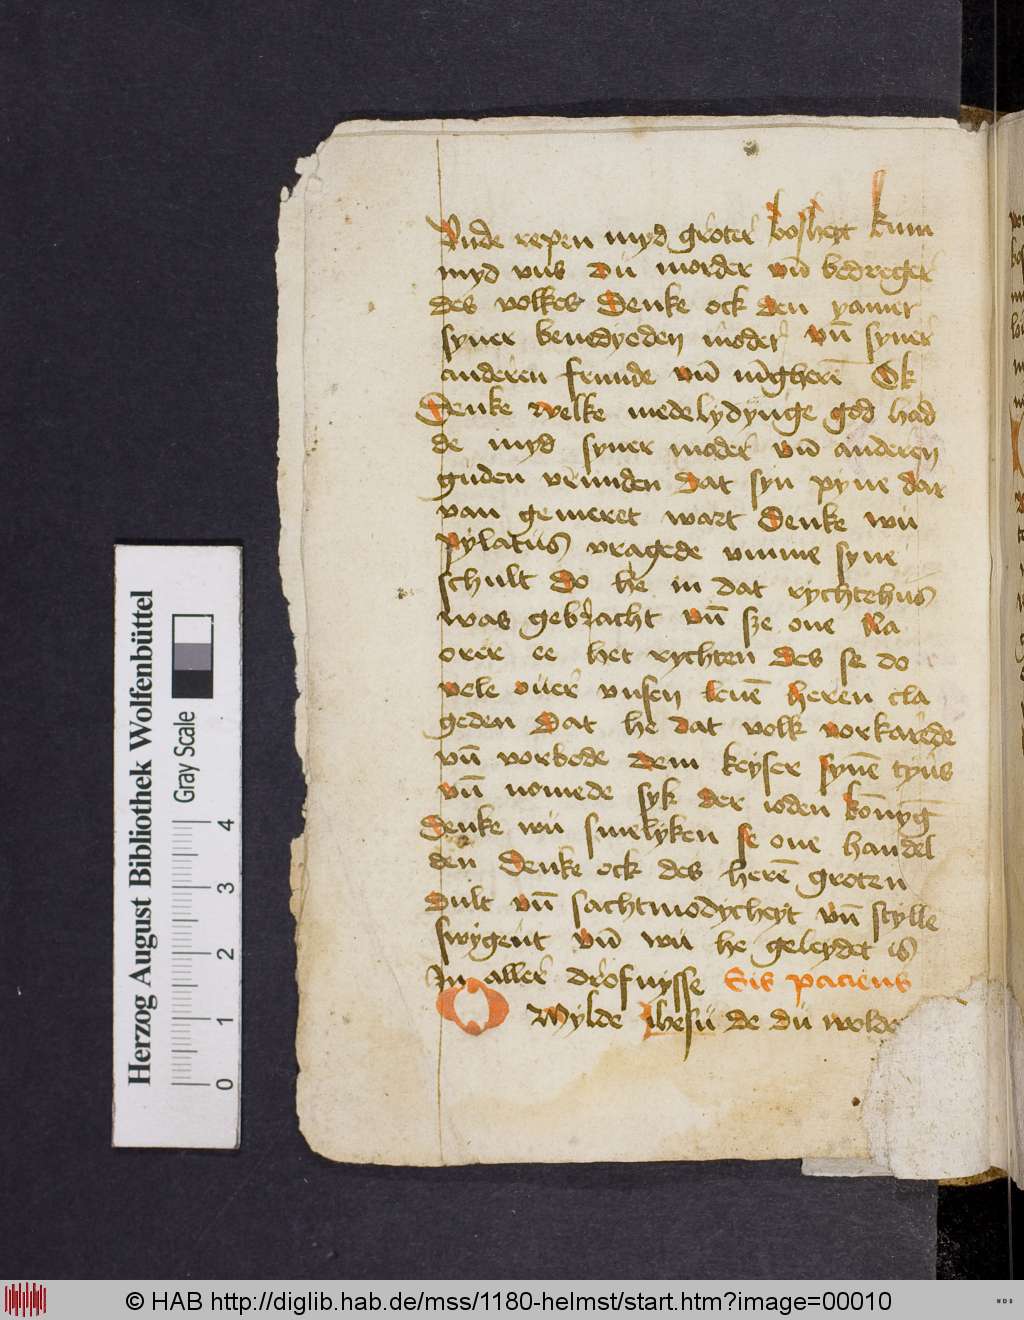 Vnde repen myd groter bosheyt kum
myd vns du morder vn̄ bedreger
des volkes Denke ock den yamer
syner benedyeden moder vn̄ syner
anderen frunde vn̄ iūgherē Ok
Denke welke medelydynge god had
de myd syner moder vn̄ anderen
guden vrunden dat syn pyne dar
van gemeret wart Denke wu
pylatus vragede vmme syne
schult do he in dat rychtehus
was gebracht vn̄ sze one Na
orer ee het rychten des se do
vele ouer vnsen leuē heren cla
geden dat he dat volk vorkarede
vn̄ vorbode dem keyser synē tyns
vn̄ nomede syk der ioden konnyḡ
denke wu smelyken se one handel
den Denke ock des herē groten
dult vn̄ sachtmodycheyt vn̄ stylle
swygent vn̄ wu he geleydet is
In aller drofnysse Sis paciens
O Mylde ihesu de du wolde
Herzog August Bibliothek Wolfenbüttel
Gray Scale
0 1 2 3 4
© HAB http://diglib.hab.de/mss/1180-helmst/start.htm?image=00010